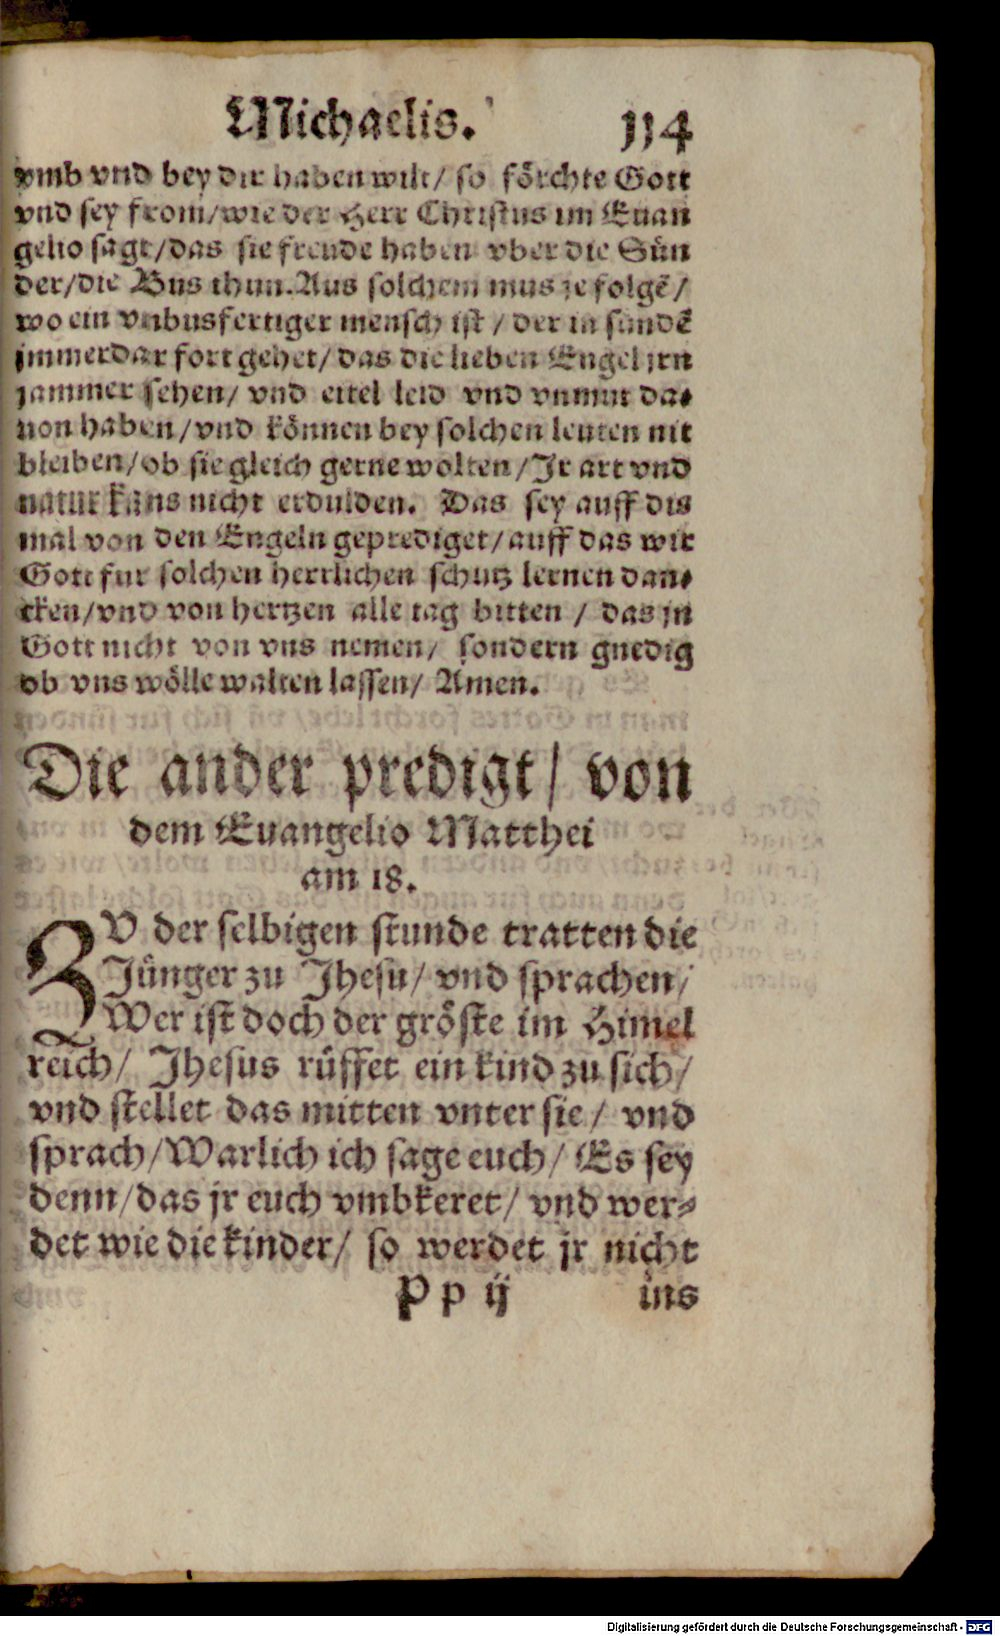 Michaelis. 114
vmb vnd bey dir haben wilt/ so förchte Gott
vnd sey from/wie der Herr Christus im Euan
gelio sagt/das sie freude haben vber die Sün
der/die Bus thun. Aus solchem mus je folgē/
wo ein vnbusfertiger mensch ist / der in sundē
jmmerdar fort gehet/ das die lieben Engel jrn
jammer sehen/ vnd eitel leid vnd vnmut da⸗
uon haben/vnd können bey solchen leuten nit
bleiben/ob sie gleich gerne wolten/Jr art vnd
natur kans nicht erdulden. Das sey auff dis
mal von den Engeln geprediget/auff das wir
Gott fur solchen herrlichen schutz lernen dan⸗
cken/vnd von hertzen alle tag bitten / das jn
Gott nicht von vns nemen/ sondern gnedig
ob vns wölle walten lassen/ Amen.
Die ander predigt/ von
dem Euangelio Matthei
am 18.
ZV der selbigen stunde tratten die
Jünger zu Jhesu/ vnd sprachen/
Wer ist doch der gröste im Himel
reich/ Jhesus rüffet ein kind zu sich/
vnd stellet das mitten vnter sie/ vnd
sprach/Warlich ich sage euch/ Es sey
denn/das jr euch vmbkeret/ vnd wer⸗
det wie die kinder/ so werdet jr nicht
P p ij ins
Digitalisierung gefördert durch die Deutsche Forschungsgemeinschaft - DFG